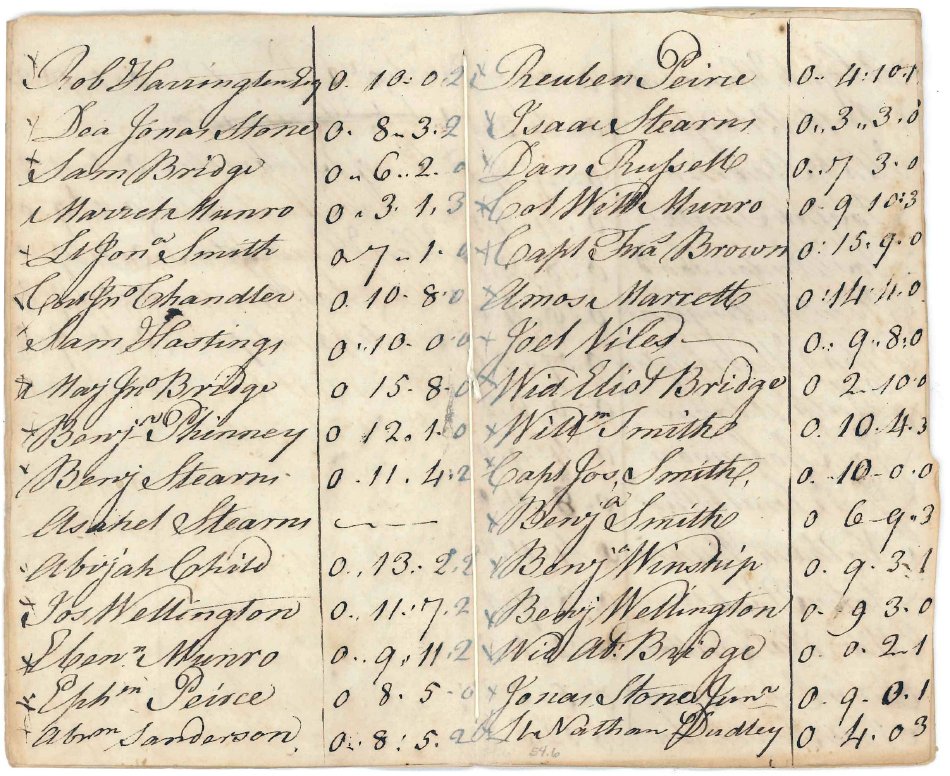 Rob Harrington Esq 0. 10: 0 2
Dea Jonas Stone 0. 8.. 3. 2
Sam Bridge 0.. 6.. 2. 0
Marret Munro 0.. 3. 1. 3
Lt Jona Smith 0 7 .. 1. 0
Jno Chandler 0. 10. 8. 0
Sam Hastings 0.. 10. 0. 0
Maj Jno Bridge 0 15. 8. 0
Benja Phinney 0 12. 1. 0
Benj Stearns 0. 11. 4. 2
Asahel Stearns —— ——
Abijah Child 0.. 13. 2. 2
Jos Wellington 0.. 11. 7. 2
Ebenr Munro 0.. 9. 11. 2
Ephm Peirce 0 8. 5. 0
Abrm Sanderson 0.. 8: 5. 2
Reuben Peirce 0.. 4: 10. 1
Isaac Stearns 0.. 3.. 3. 0
Dan Russell 0.. 7 3. 0
Col Will Munro 0. 9 10: 3
Capt Fra Brown 0: 15. 9. 0
Amos Marrett 0: 14. 4. 0
Joel Viles 0.. 9. 8: 0
Wid Eliot Bridge 0 2. 10. 0
Willm Smith 0. 10. 4. 3
Capt Jos, Smith, 0. 10. 0. 0
Benja Smith 0 6 9.. 3
Benja Winship 0. 9. 3. 1
Benj Wellington 0. 9 3. 0
Wid Ab: Bridge 0. 0. 2. 1
Jonas Stone Junr 0. 9. 0. 1
Lt Nathan Dudley 0 4. 0 3